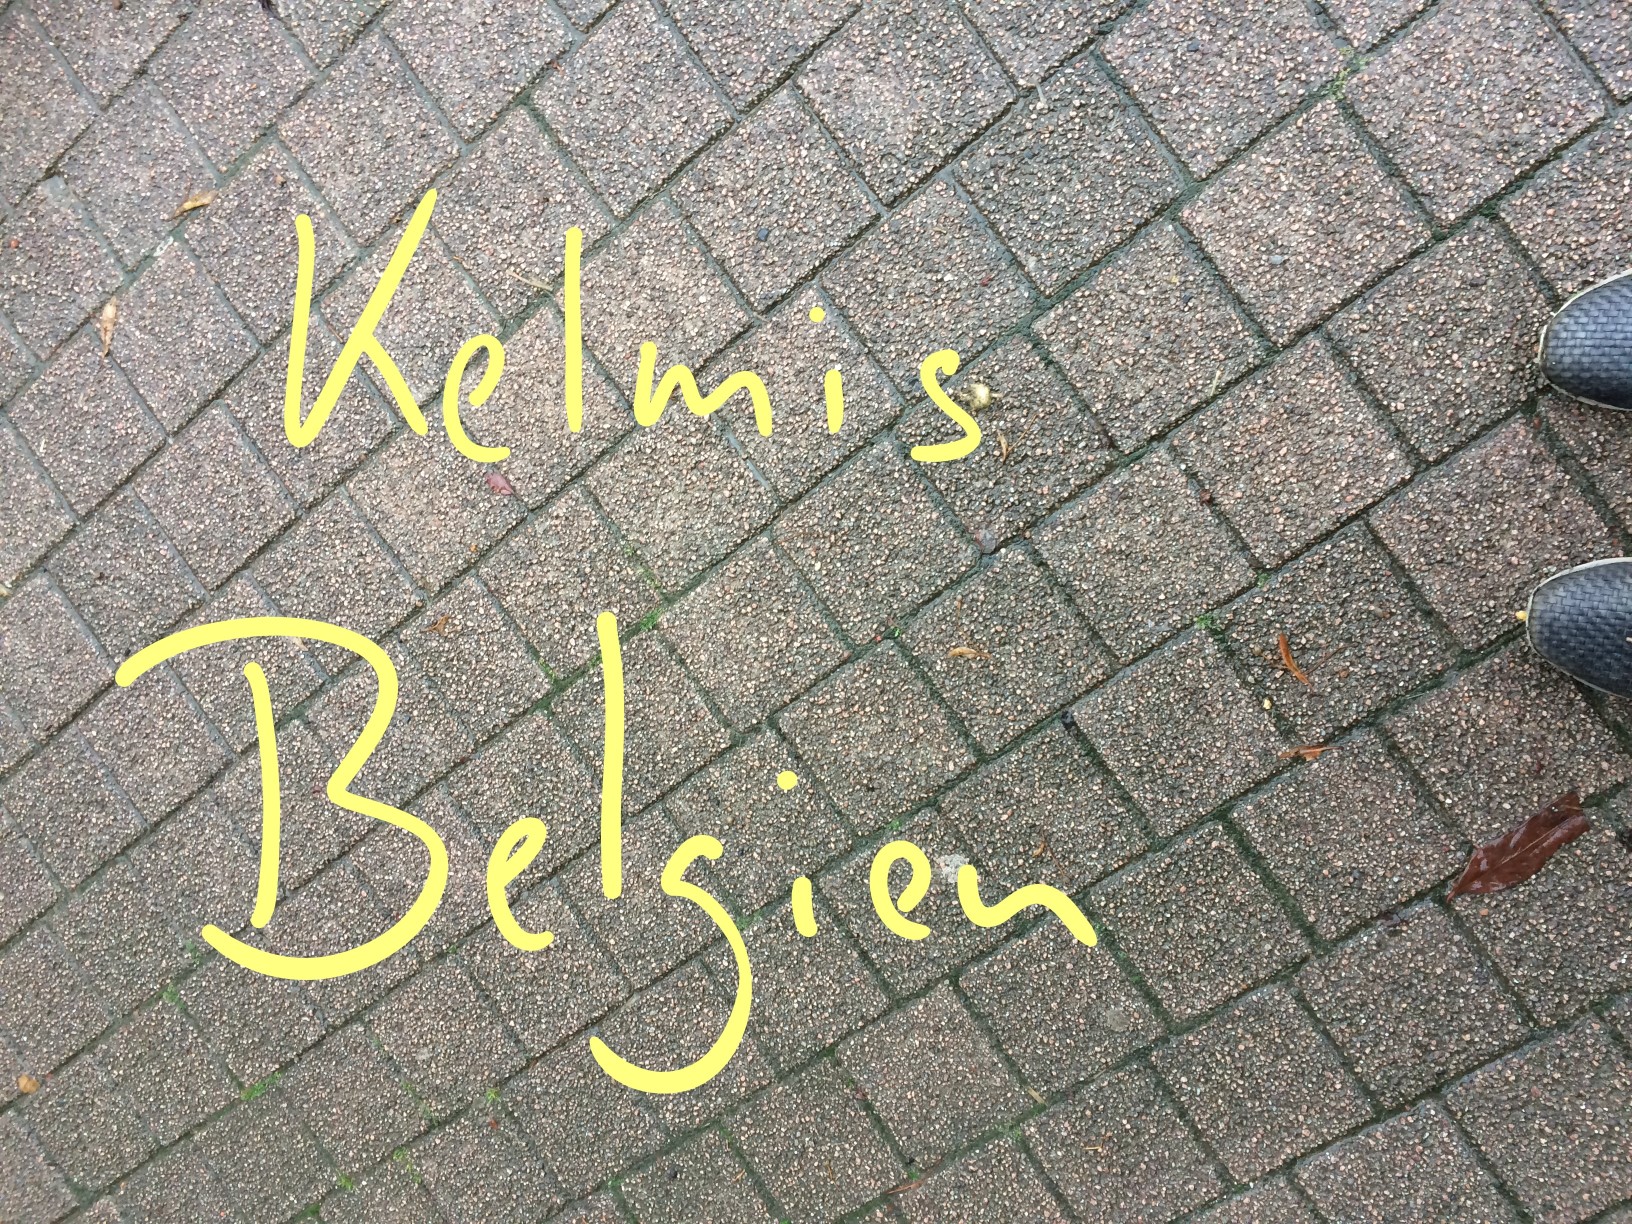 Kelmis
Belgien